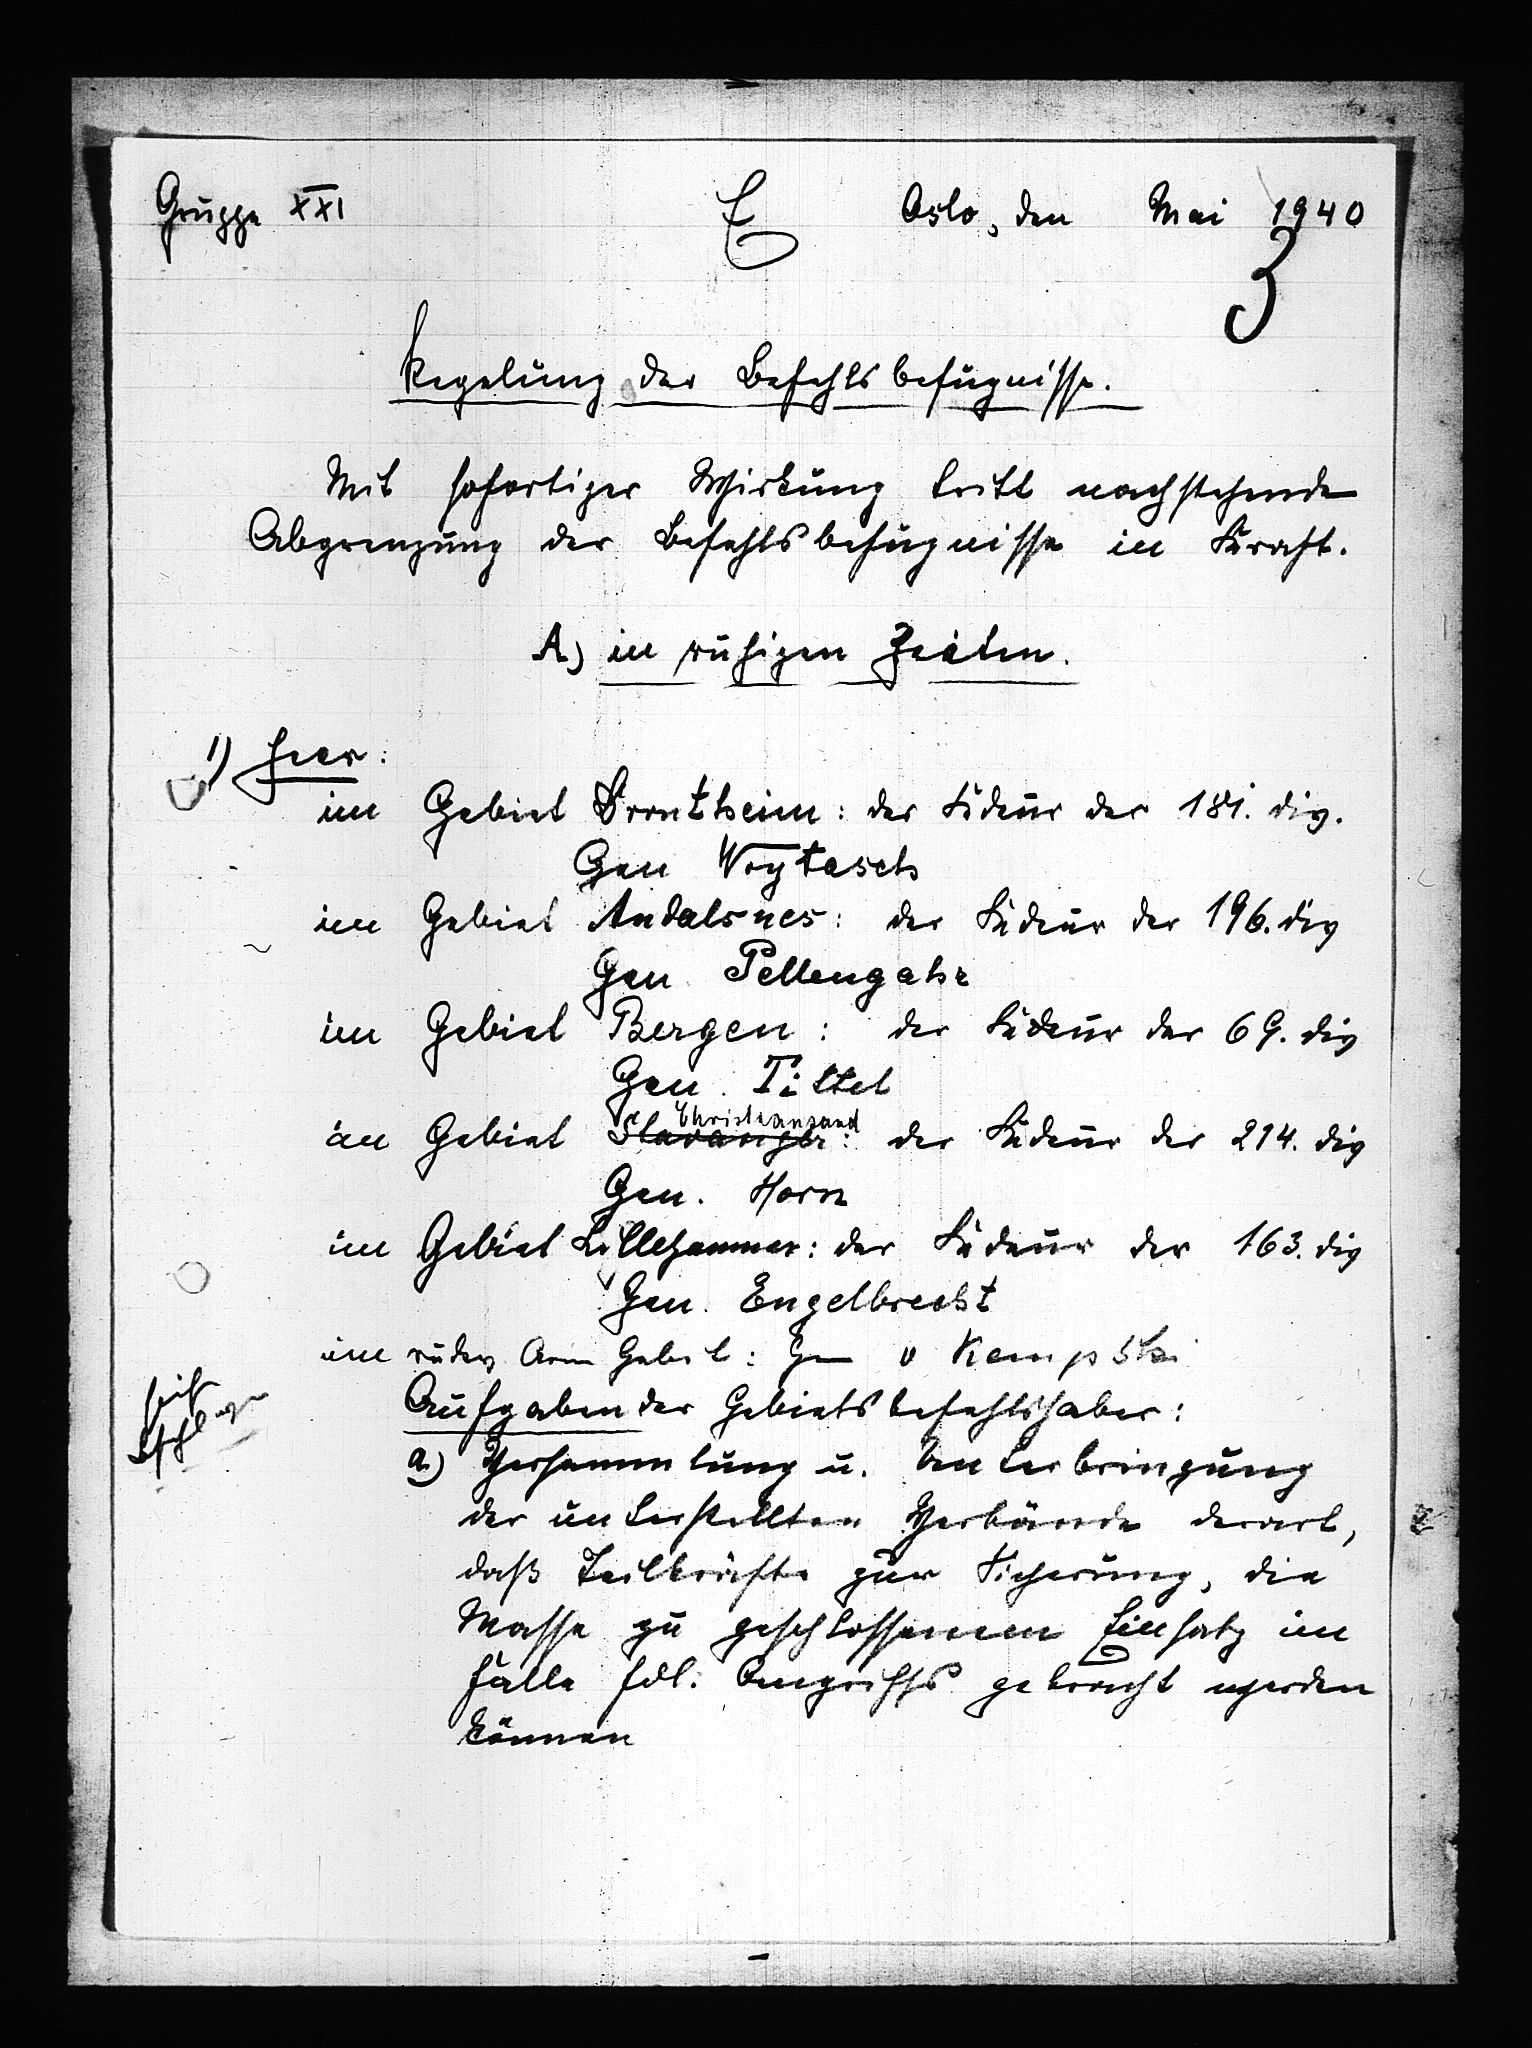 Gruppe XXI E Oslo, den Mai 1940
3
Regelung der Befehlsbefugnisse.
Mit sofortiger Wirkung tritt nachstehende
Abgrenzung der Befehlsbefugnisse in Kraft.
A) in ruhigen Zeiten.
1) Heer:
im Gebiet Drontheim: der Kdeur der 181. Div.
Gen Woytasch
im Gebiet Andalsnes: der Kdeur der 196. Div
Gen. Pellengahr
im Gebiet Bergen: der Kdeur der 69. Div
Gen. Tittel
Christiansand
im Gebiet Stavanger: der Kdeur der 214. Div
Gen. Horn
im Gebiet Lillehammer: der Kdeur der 163. Div
Gen. Engelbrecht
im Gebiet: Gen v Kempski
Aufgaben der Gebietsbefehlshaber:
a) Versammlung u. Unterbringung
der unterstellten Verbände derart,
daß Teilkräfte zur Sicherung, die
Masse zu geschlossenem Einsatz im
Falle fdl. Angriffs gebracht werden
können